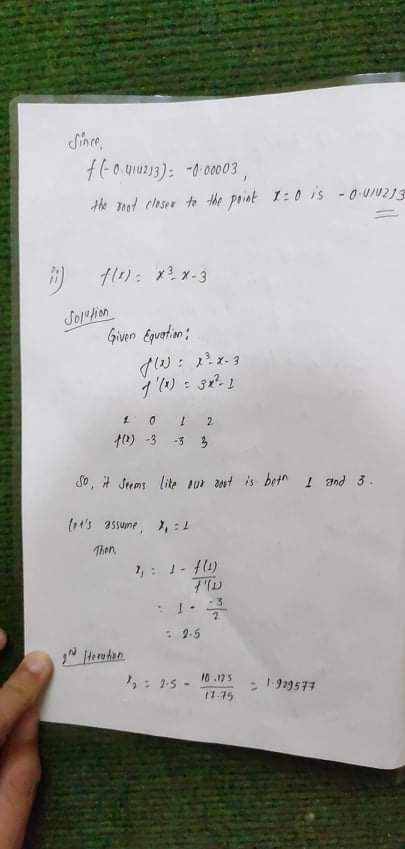 Since,
f(-0.414213) = -0.00003,
the root closer to the point x=0 is -0.414213
ii) f(x) = x³-x-3
Solution
Given Equation:
f(x) = x³-x-3
f'(x) = 3x²-1
x 0 1 2
f(x) -3 -3 3
So, it seems like our root is betn 1 and 3.
Let's assume, x₁ = 1
Then,
x₁ = 1 - f(1)/f'(1)
= 1 - -3/2
= 2.5
2nd Iteration
x₂ = 2.5 - 10.125/17.75 = 1.929577